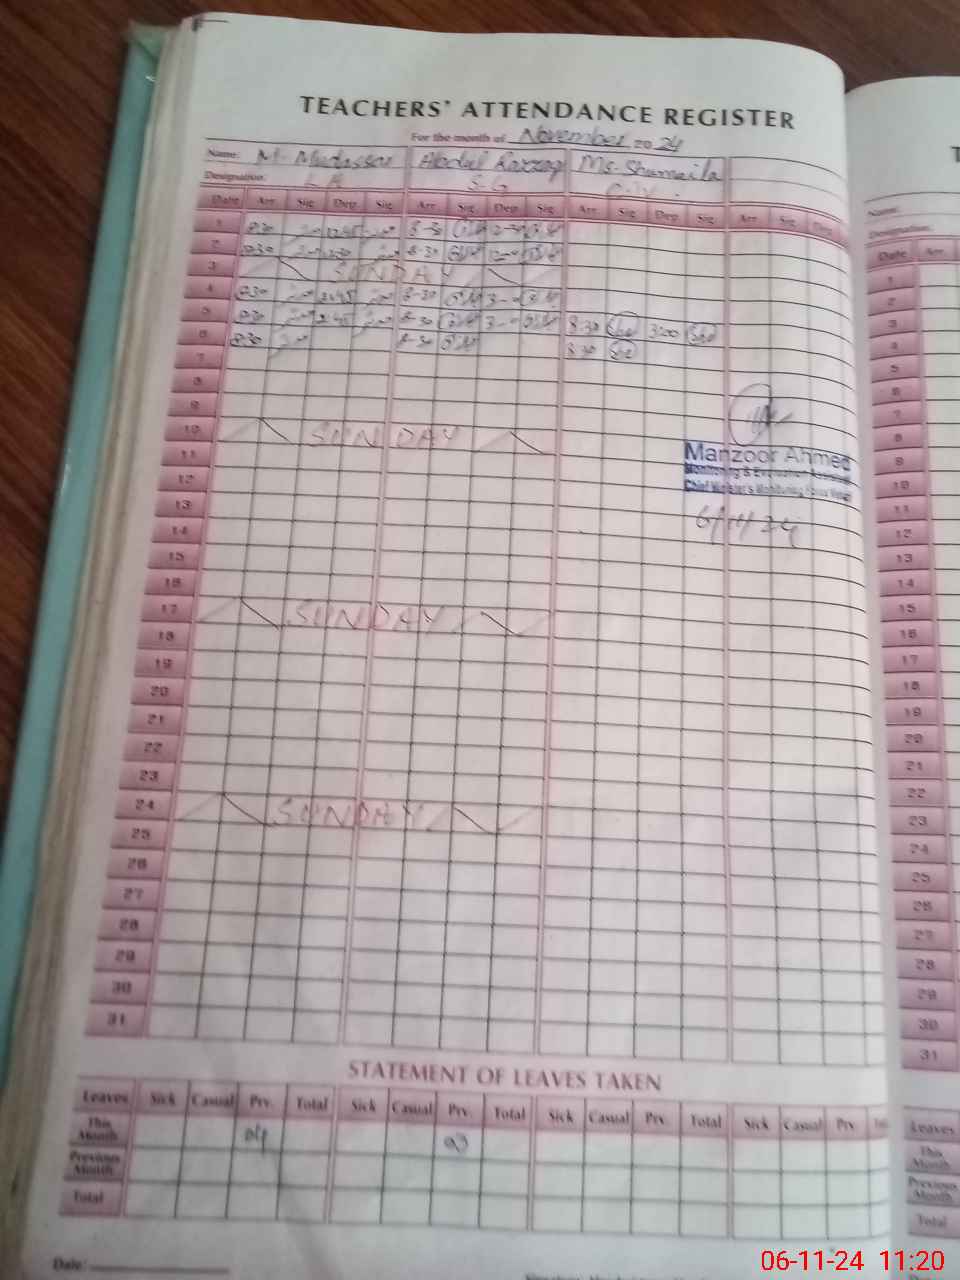 TEACHERS' ATTENDANCE REGISTER
For the month of November 2024
Name: M. Mudassar Abdul Razzaq Ms. Shumaila
Designation: S.G
Date Arr. Sig. Dep. Sig. Arr. Sig. Dep. Sig. Arr. Sig. Dep. Sig. Arr. Sig. Dep.
1 8:30 12:45 8-30 12-30
2 8:30 8-30
3 SUNDAY
4 8:30 2:45 8-30
5 8:30 2:45 8-30 8:30 3:00
6 8:30 8-30 8:30
7
8
9
10 SUNDAY
11
12
13
14
15
16
17 SUNDAY
18
19
20
21
22
23
24 SUNDAY
25
26
27
28
29
30
31
Manzoor Ahmed
Monitoring & Evaluation Assistant
Chief Minister's Monitoring Force
6/11/24
STATEMENT OF LEAVES TAKEN
Leaves Sick Casual Prv. Total Sick Casual Prv. Total Sick Casual Prv. Total Sick Casual Prv.
This Month
Previous Month
Total
Date:
Name:
Designation:
Date Arr
1
2
3
4
5
6
7
8
9
10
11
12
13
14
15
16
17
18
19
20
21
22
23
24
25
26
27
28
29
30
31
Leaves
This Month
Previous Month
Total
06-11-24 11:20